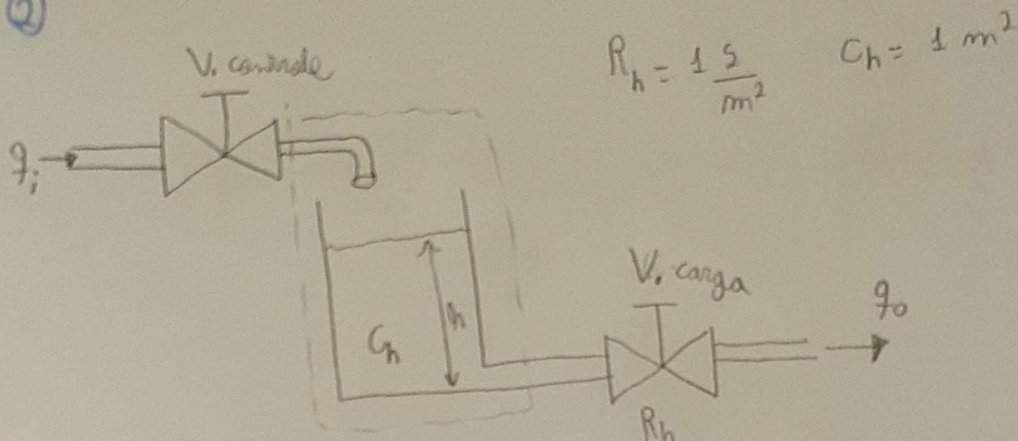 2
V. controle
R_h = 1 S/m²
C_h = 1 m²
q_i
V. carga
q_o
C_h
h
R_h